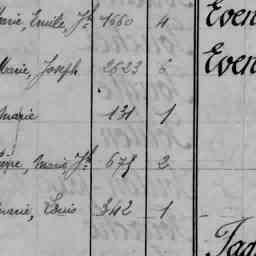 Marie, Emile, Jh 1660 4 Even
Marie, Joseph 2623 6 Even
marie 131 1
Marie Jh 678 2
Louis 342 1